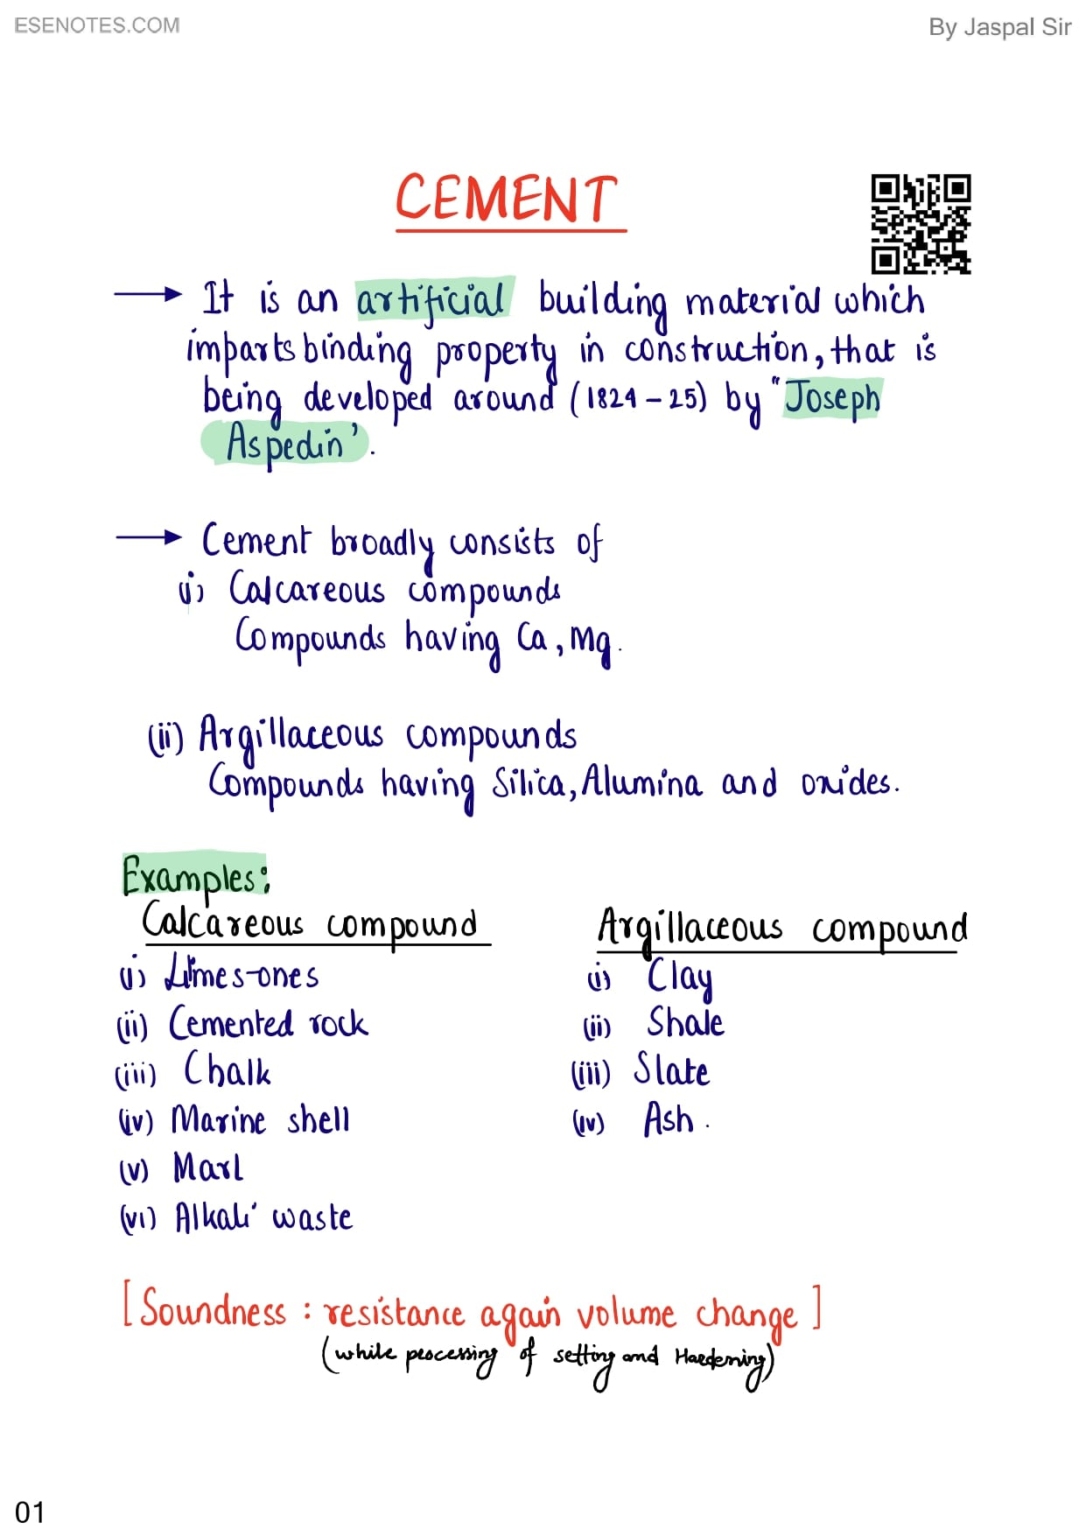 ESENOTES.COM
By Jaspal Sir
CEMENT
→ It is an artificial building material which
imparts binding property in construction, that is
being developed around (1824-25) by "Joseph
Aspedin'.
→ Cement broadly consists of
(i) Calcareous compounds
Compounds having Ca, Mg.
(ii) Argillaceous compounds
Compounds having Silica, Alumina and oxides.
Examples:
Calcareous compound
(i) Limes-ones
(ii) Cemented rock
(iii) Chalk
(iv) Marine shell
(v) Marl
(vi) Alkali waste
Argillaceous compound
(i) Clay
(ii) Shale
(iii) Slate
(iv) Ash.
[Soundness : resistance again volume change]
(while processing of setting and Hardening)
01